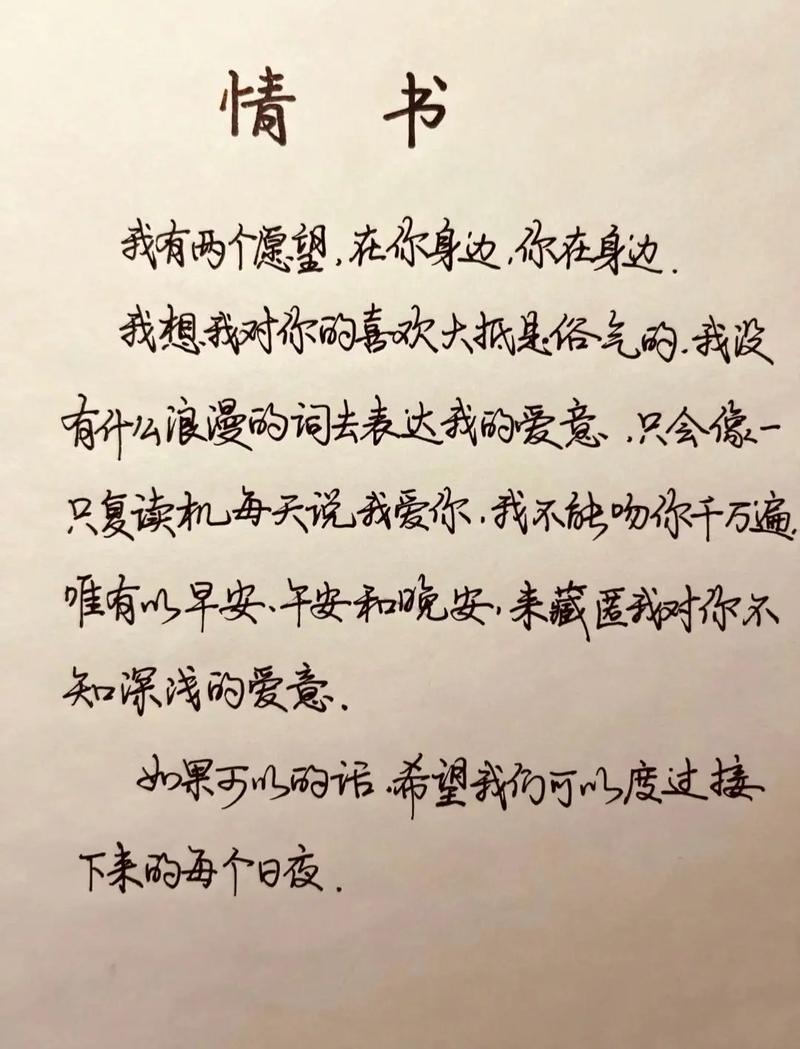 情 书
我有两个愿望,在你身边,你在身边.
我想我对你的喜欢大抵是俗气的.我没
有什么浪漫的词去表达我的爱意,只会像一
只复读机每天说我爱你,我不能吻你千万遍,
唯有以早安、午安和晚安,来藏匿我对你不
知深浅的爱意.
如果可以的话,希望我们可以度过接
下来的每个日夜.